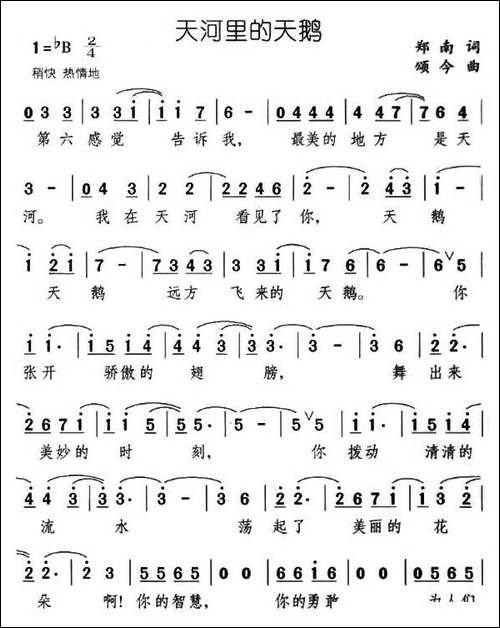 天河里的天鹅
1=♭B 2/4
郑南 词
稍快 热情地
颂今 曲
0 3 3 | 3 3 i | i i 7 | 6 - | 0 4 4 4 | 4 4 7 | 7 6 4 |
第六感觉 告诉我， 最美的地方 是天
3 - | 0 4 3 | 2 2 | 2 2 4 6 | 2 - | 2 4 3 | i - |
河。 我在天河 看见了你， 天鹅
i 2 i | 7 - | 7 3 4 3 | 3 3 | i 7 6 | 6 - | 6 ∨ 5 |
天鹅 远方飞来的天鹅。 你
i i· | i 5 i 4 | 4 4 3 | 3 3· | 3 - | 3 6 | 2 2· |
张开 骄傲的翅膀， 舞出来
2 6 7 i | i 5 | 5 5· | 5 - | 5 ∨ 5 | i i· | i 5 i 4 |
美妙的时刻， 你拨动 清清的
4 4 3 | 3 3· | 3 - | 3 6 | 2 2· | 2 6 7 i | 6 3 2 |
流水 荡起了 美丽的花
2 2· | 2 3 | 5 5 6 5 | 0 0 | 6 6 i 6 | 0 0 | 5 5 6 5 |
朵 啊！你的智慧， 你的勇敢 为人们